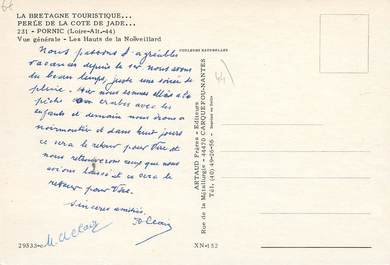 LA BRETAGNE TOURISTIQUE...
PERÉE DE LA COTE DE JADE...
231 - PORNIC (Loire-Atl.-44)
Vue générale - Les Hauts de la Noëveillard
COULEURS NATURELLES
Nous passons d'agréables
vacances depuis le 1er nous avons
du beau temps, juste une soirée de
pluie. Hier nous sommes allés à la
pêche aux crabes avec les
enfants et demain nous irons a
noirmoutier et dans huit jours
ce sera le retour pour
nous retrouverons ceux que nous
avions laissé et ce sera le
retour pour
sincères amitiés
29333
XN-152
ARTAUD Frères - Editeurs
Rue de la Métallurgie - 44470 CARQUEFOU-NANTES
Tél. (40) 49-26-56
44